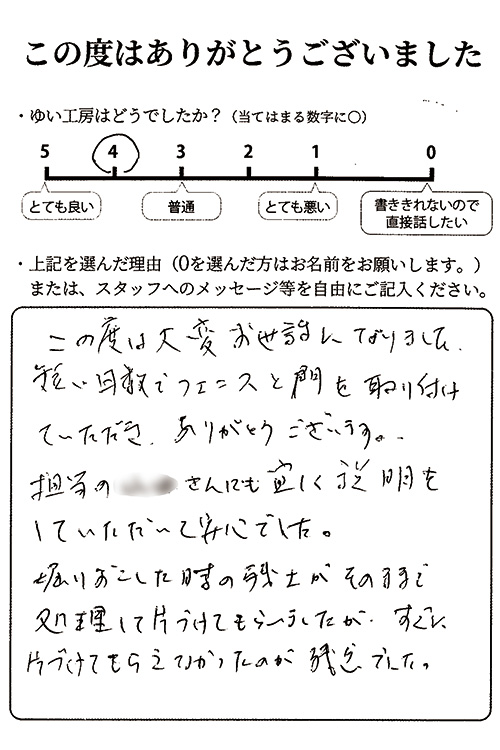 この度はありがとうございました
・ゆい工房はどうでしたか？（当てはまる数字に○）
5 4 3 2 1 0
とても良い 普通 とても悪い 書ききれないので
直接話したい
・上記を選んだ理由（0を選んだ方はお名前をお願いします。）
または、スタッフへのメッセージ等を自由にご記入ください。
この度は大変お世話になりました。
短い日数でフェンスと門を取り付け
ていただき、ありがとうございます。
担当の さんにも宜しく説明を
していただいて安心でした。
堀りおこした時の残土がそのままで
処理して片づけてもらいましたが、すぐに
片づけてもらえなかったのが残念でした。